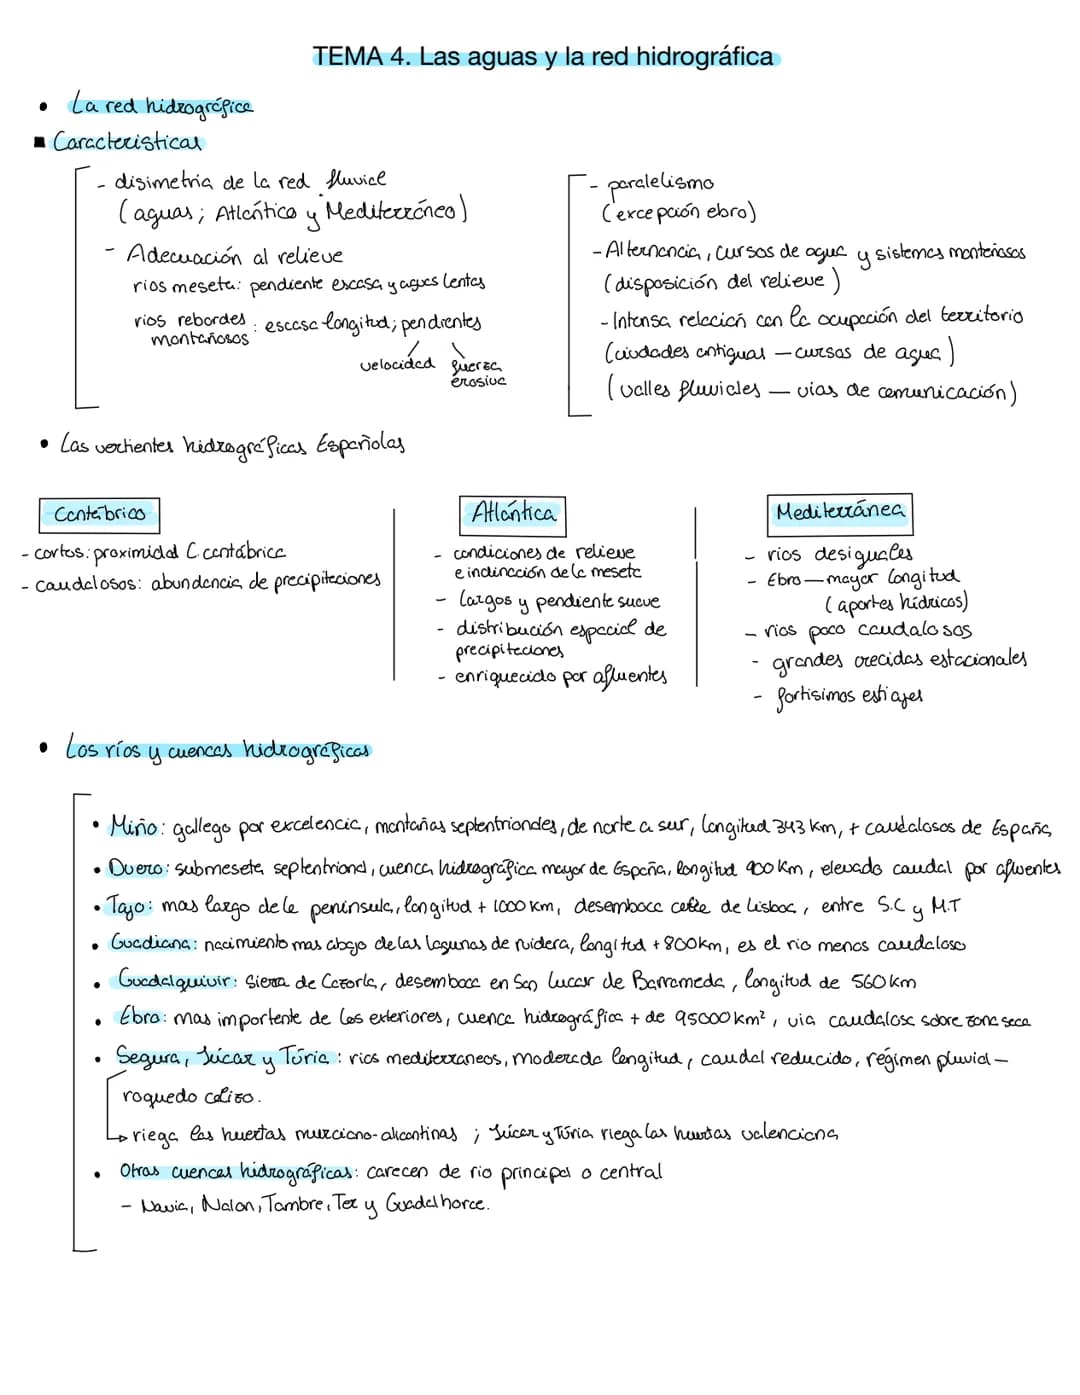 TEMA 4. Las aguas y la red hidrográfica
• La red hidrográfica
▪ Caracteristicas
- disimetria de la red fluvial
(aguas; Atlántico y Mediterráneo)
- Adecuación al relieve
rios meseta: pendiente escasa y aguas lentas
rios rebordes montañosos: escasa longitud; pendientes
velocidad fuerza
erosiva
- paralelismo
(excepción ebro)
- Alternancia, cursos de agua y sistemas montañosos
(disposición del relieve)
- Intensa relación con la ocupación del territorio
(ciudades antiguas — cursos de agua)
(valles fluviales — vias de comunicación)
• Las vertientes hidrográficas Españolas
Cantábrico
- cortos: proximidad C. cantábrica
- caudalosos: abundancia de precipitaciones
Atlántica
- condiciones de relieve
e inclinación de la meseta
- largos y pendiente suave
- distribución espacial de
precipitaciones
- enriquecido por afluentes
Mediterránea
- rios desiguales
- Ebro — mayor longitud
(aportes hídricos)
- rios poco caudalosos
- grandes crecidas estacionales
- fortisimos estiajes
• Los ríos y cuencas hidrográficas
• Miño: gallego por excelencia, montañas septentrionales, de norte a sur, longitud 343 km, + caudalosos de España
• Duero: submeseta septentrional, cuenca hidrográfica mayor de España, longitud 900 km, elevado caudal por afluentes
• Tajo: mas largo de la peninsula, longitud + 1000 km, desemboca cerca de Lisboa, entre S.C y M.T
• Guadiana: nacimiento mas abajo de las lagunas de ruidera, longitud + 800km, es el rio menos caudaloso
• Guadalquivir: Sierra de Cazorla, desemboca en San Lucar de Barrameda, longitud de 560 km
• Ebro: mas importente de los exteriores, cuenca hidrográfica + de 95000 km², via caudalosa sobre zona seca
• Segura, Júcar y Túria: rios mediterraneos, moderada longitud, caudal reducido, régimen pluvial –
roquedo calizo.
↳ riega las huertas murciano-alicantinas ; Júcar y Túria riega las huertas valenciana
• Otras cuencas hidrográficas: carecen de rio principal o central
- Navia, Nalon, Tambre, Ter y Guadalhorce.